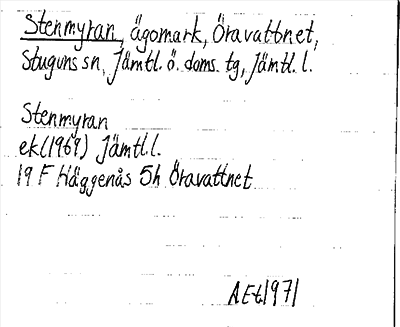 Stenmyran, ägomark, Öravattnet,
Stuguns sn, Jämtl. ö. doms. tg, Jämtl. l.
Stenmyran
ek (1969) Jämtl. l.
19 F Häggenås 5h Öravattnet
A Et 1971